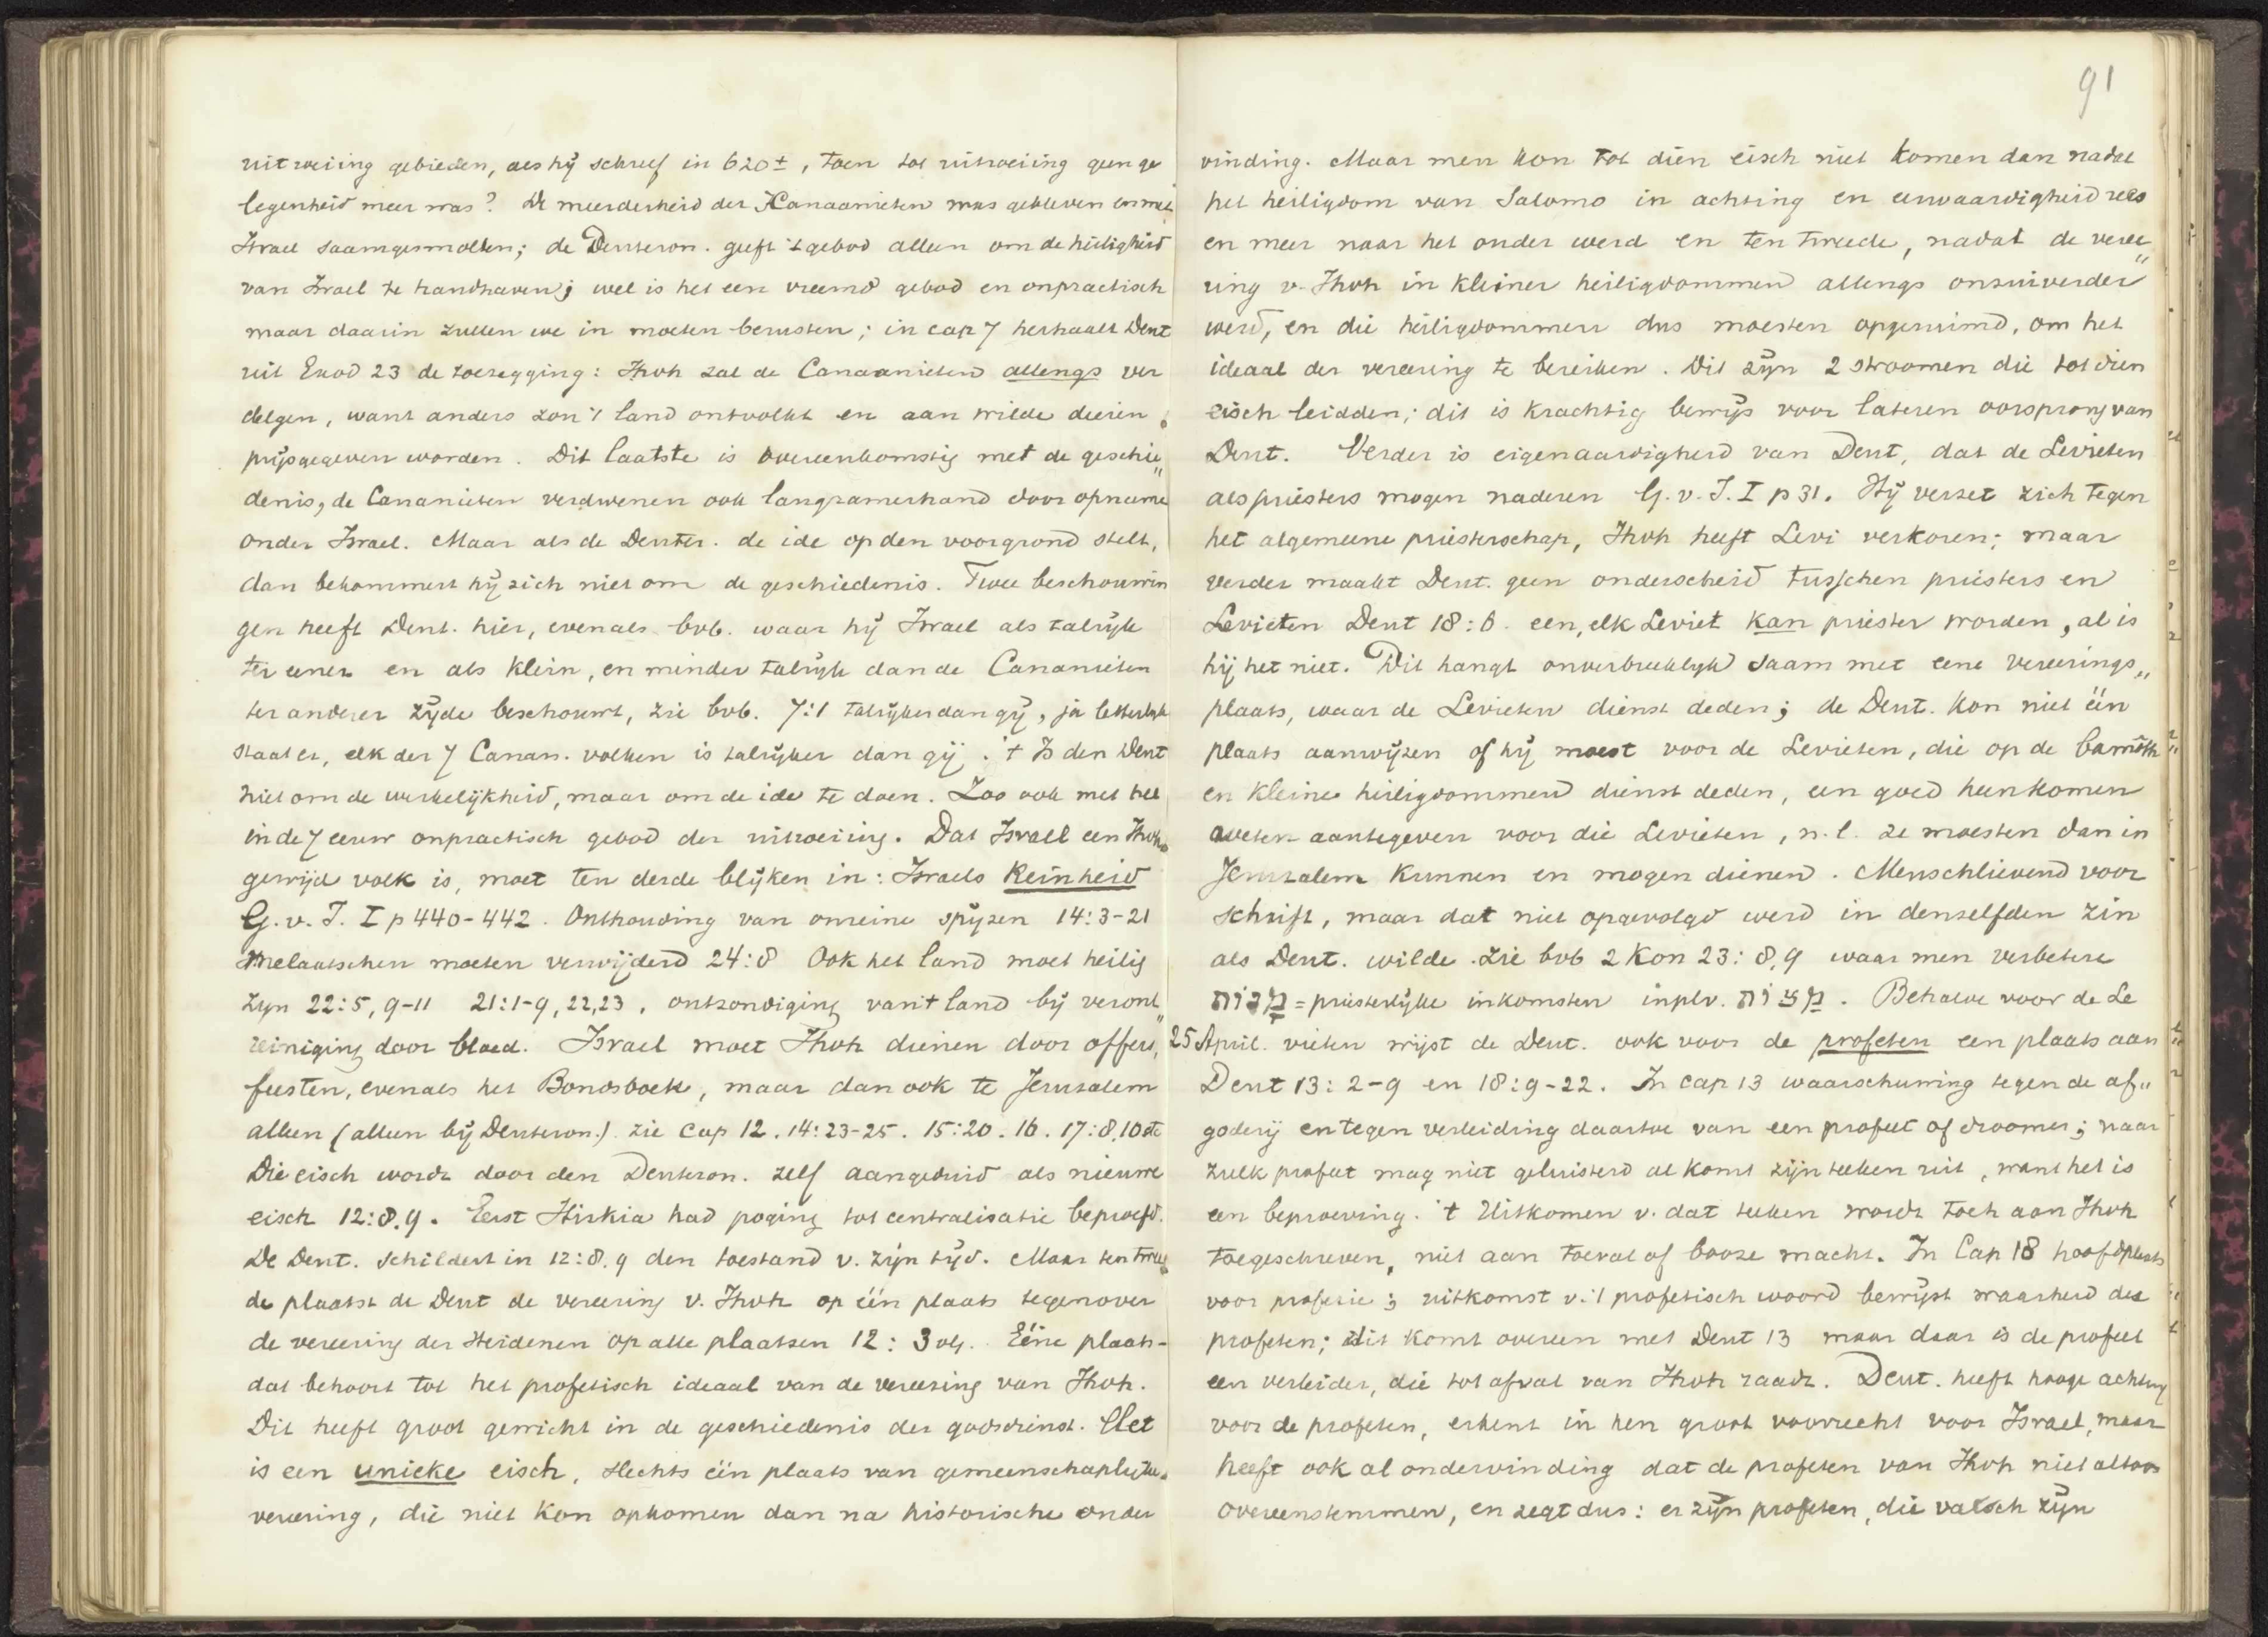 91
uitroeiing gebieden, als hij schreef in 620±, toen tot uitroeiing geen ge
legenheid meer was? De meerderheid der Kanaanieten was gebleven en met
Israel saamgesmolten; de Deuteron. geeft 't gebod alleen om de heiligheid
van Israel te handhaven; wel is het een vreemd gebod en onpractisch
maar daarin zullen we in moeten berusten; in cap 7 herhaalt Deut
uit Exod 23 de toezegging: Jhvh zal de Canaanieten allengs ver
delgen, want anders zou 't land ontvolkt en aan wilde dieren
prijsgegeven worden. Dit laatste is overeenkomstig met de geschie„
denis, de Cananieten verdwenen ook langzamerhand door opname
onder Israel. Maar als de Deuter. de ide op den voorgrond stelt,
dan bekommert hij zich niet om de geschiedenis. Twee beschouwin
gen heeft Deut. hier, evenals bvb. waar hij Israel als talrijk
ter eener en als klein, en minder talrijk dan de Cananieten
ter anderer zijde beschouwt, zie bvb. 7:1 talrijker dan gij, ja letterlijk
staat er, elk der 7 Canan. volken is talrijker dan gij. 't Is den Deut
niet om de werkelijkheid, maar om de ide te doen. Zoo ook met het
in de 7 eeuw onpractisch gebod der uitroeiing. Dat Israel een Jhvh
gewijd volk is, moet ten derde blijken in: Israels Reinheid
G. v. I. I p 440-442. Onthouding van onreine spijzen 14:3-21
Melaatschen moeten verwijderd 24:8 Ook het land moet heilig
zijn 22:5, 9-11 21:1-9, 22,23, ontzondiging van 't land bij veront„
reiniging door bloed. Israel moet Jhvh dienen door offers,
feesten, evenals het Bondsboek, maar dan ook te Jeruzalem
alleen (alleen bij Deuteron.) zie cap 12. 14:23-25. 15:20. 16. 17:8,10 etc
Die eisch wordt door den Deuteron. zelf aangeduid als nieuwe
eisch 12:8.9. Eerst Hiskia had poging tot centralisatie beproefd.
De Deut. schildert in 12:8.9 den toestand v. zijn tijd. Maar ten twee
de plaatst de Deut de vereering v. Jhvh op één plaats tegenover
de vereering der Heidenen op alle plaatsen 12: 3 vlg. Eéne plaats-
dat behoort tot het profetisch ideaal van de vereering van Jhvh.
Dit heeft groot gewicht in de geschiedenis der godsdienst. Het
is een unieke eisch, slechts één plaats van gemeenschaplijke
vereering, die niet kon opkomen dan na historische onder
vinding. Maar men kon tot dien eisch niet komen dan nadat
het heiligdom van Salomo in achting en eerwaardigheid rees
en meer naar het ouder werd en ten tweede, nadat de veree„
ring v. Jhvh in kleiner heiligdommen allengs onzuiverder
werd, en die heiligdommen dus moesten opgeruimd, om het
ideaal der vereering te bereiken. Dit zijn 2 stroomen die tot dien
eisch leidden; dit is krachtig bewijs voor lateren oorsprong van
Deut. Verder is eigenaardigheid van Deut, dat de Levieten
als priesters mogen naderen G. v. I. I p 31. Hij verzet zich tegen
het algemeene priesterschap, Jhvh heeft Levi verkoren; maar
verder maakt Deut. geen onderscheid tusschen priesters en
Levieten Deut 18:6. een, elk Leviet kan priester worden, al is
hij het niet. Dit hangt onverbreeklijk saam met eene vereerings„
plaats, waar de Levieten dienst deden; de Deut. kon niet één
plaats aanwijzen of hij moest voor de Levieten, die op de bamôth
en kleine heiligdommen dienst deden, een goed heenkomen
weten aantegeven voor die Levieten, n.l. ze moesten dan in
Jeruzalem kunnen en mogen dienen. Menschlievend voor
schrift, maar dat niet opgevolgd werd in denzelfden zin
als Deut. wilde. zie bvb 2 Kon 23: 8,9 waar men verbetere
מָנוֹת = priesterlijke inkomsten in plv. מַצּוֹת. Behalve voor de Le
25 April. vieten wijst de Deut. ook voor de profeten een plaats aan
Deut 13: 2-9 en 18:9-22. In cap 13 waarschuwing tegen de af„
goderij en tegen verleiding daartoe van een profeet of droomer; naar
zulk profeet mag niet geluisterd al komt zijn teeken uit, want het is
een beproeving. 't Uitkomen v. dat teeken wordt toch aan Jhvh
toegeschreven, niet aan toeval of booze macht. In Cap 18 hoofdplaats
voor profetie; uitkomst v. 't profetisch woord bewijst waarheid des
profeten; dit komt overeen met Deut 13 maar daar is de profeet
een verleider, die tot afval van Jhvh raadt. Deut. heeft hooge achting
voor de profeten, erkent in hen groot voorrecht voor Israel, maar
heeft ook al ondervinding dat de profeten van Jhvh niet altoos
overeenstemmen, en zegt dus: er zijn profeten, die valsch zijn